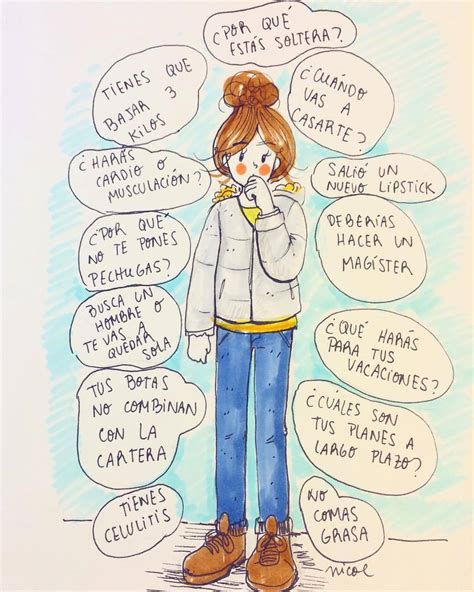 ¿POR QUÉ
ESTÁS SOLTERA?
TIENES QUE
BAJAR 3
KILOS
¿CUÁNDO
VAS A
CASARTE?
¿HARÁS
CARDIO O
MUSCULACIÓN?
SALIÓ UN
NUEVO LIPSTICK
¿POR QUÉ
NO TE PONES
PECHUGAS?
DEBERÍAS
HACER UN
MAGÍSTER
BUSCA UN
HOMBRE O
TE VAS A
QUEDAR
SOLA
¿QUÉ HARÁS
PARA TUS
VACACIONES?
TUS BOTAS
NO COMBINAN
CON LA
CARTERA
¿CUÁLES SON
TUS PLANES A
LARGO PLAZO?
TIENES
CELULITIS
NO
COMAS
GRASA
nicole